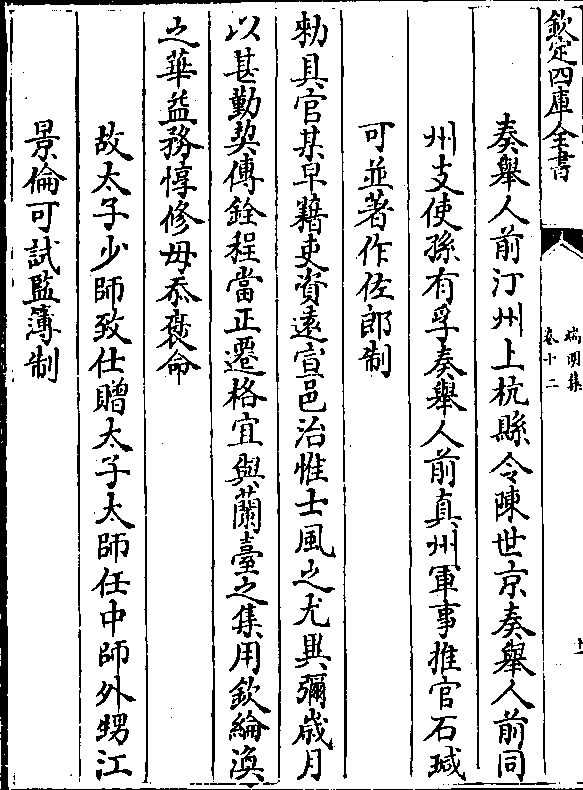 欽定四庫全書
端明集
卷十二
奏舉人前汀州上杭縣令陳世京奏舉人前同
州支使孫有孚奏舉人前真州軍事推官石瑊
可並著作佐郎制
勑具官某早藉吏資遠宦邑治惟士風之尤異彌歲月
以甚勤契傳銓程當正遷格宜與蘭臺之集用欽綸渙
之華益務惇修毋忝褒命
故太子少師致仕贈太子太師任中師外甥江
景倫可試監簿制